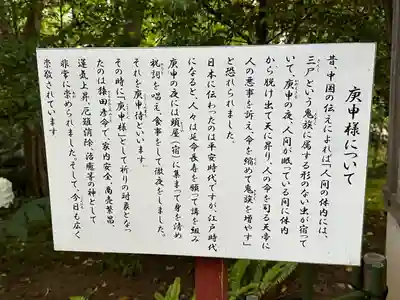 庚申様について
昔、中国の伝えによれば「人間の体内には、
三尸という鬼族に属する形のない虫が宿って
いて、庚申の夜、人間が眠っている間に体内
から脱け出て天に昇り、人の命を司る天帝に
人の悪事を訴え、命を縮めて鬼族を増やす」
と恐れられました。
日本に伝わったのは平安時代ですが、江戸時代
になると、人々は延命長寿を願って講を組み
庚申の夜には頭屋（宿）に集まって身を清め
祝詞を唱え、食事をして徹夜をしました。
それを庚申待といいます。
その時に「庚申様」として祈りの対象となっ
たのは猿田彦命で、家内安全、商売繁昌、
運気上昇、厄難消除、治癒等の神として
非常に崇められました。そして、今日も広く
崇敬されています